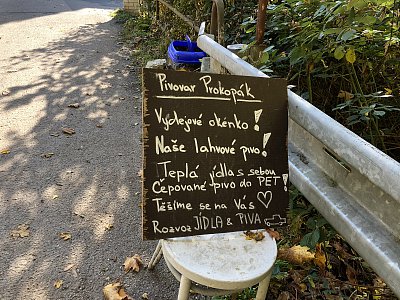 Pivovar Prokopák
Výdejové okénko!
Naše lahvové pivo!
Teplá jídla s sebou
Čepované pivo do PET!
Těšíme se na Vás
Rozvoz JÍDLA & PIVA